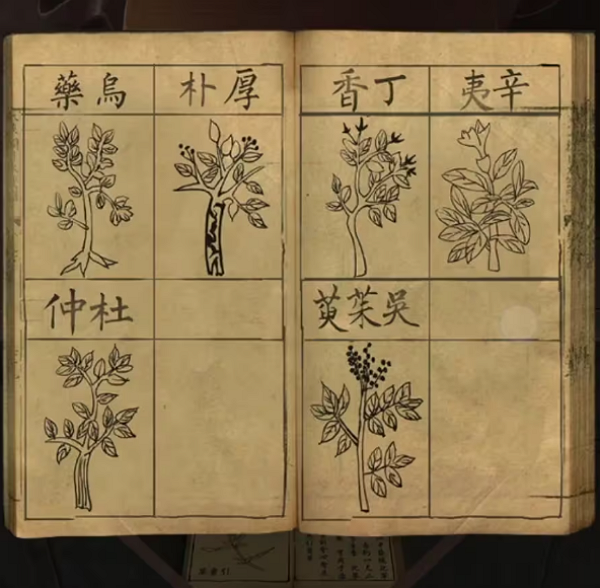 辛夷
丁香
厚朴
烏藥
吳茱萸
杜仲